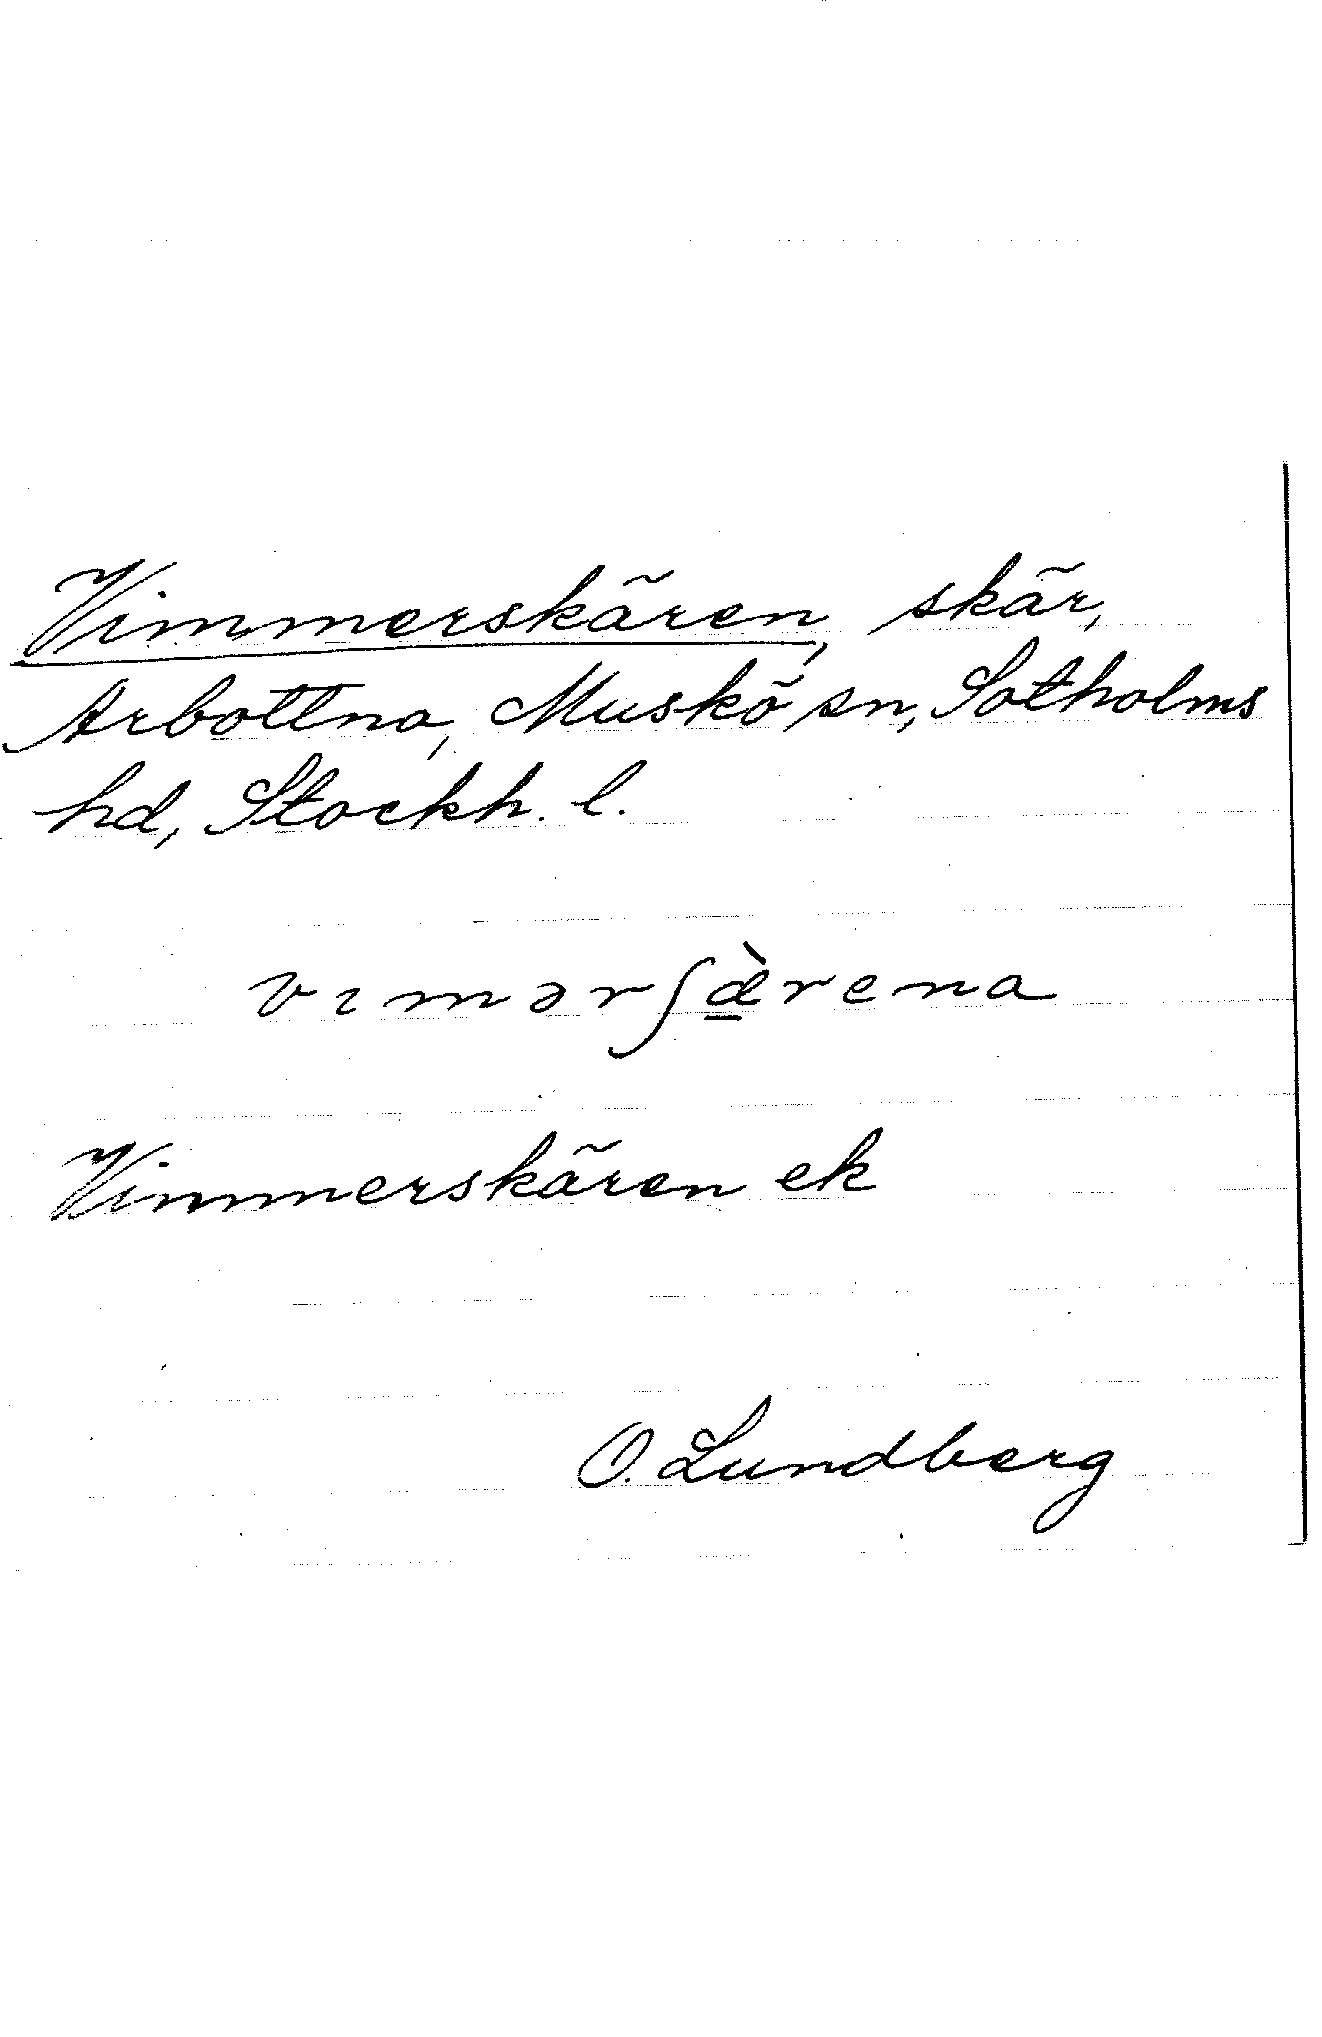 Vimmerskären, skär,
Arbottna, Muskö sn, Sotholms
hd, Stockh. l.
vımərʃæ̱̀rena
Vimmerskären ek
O. Lundberg